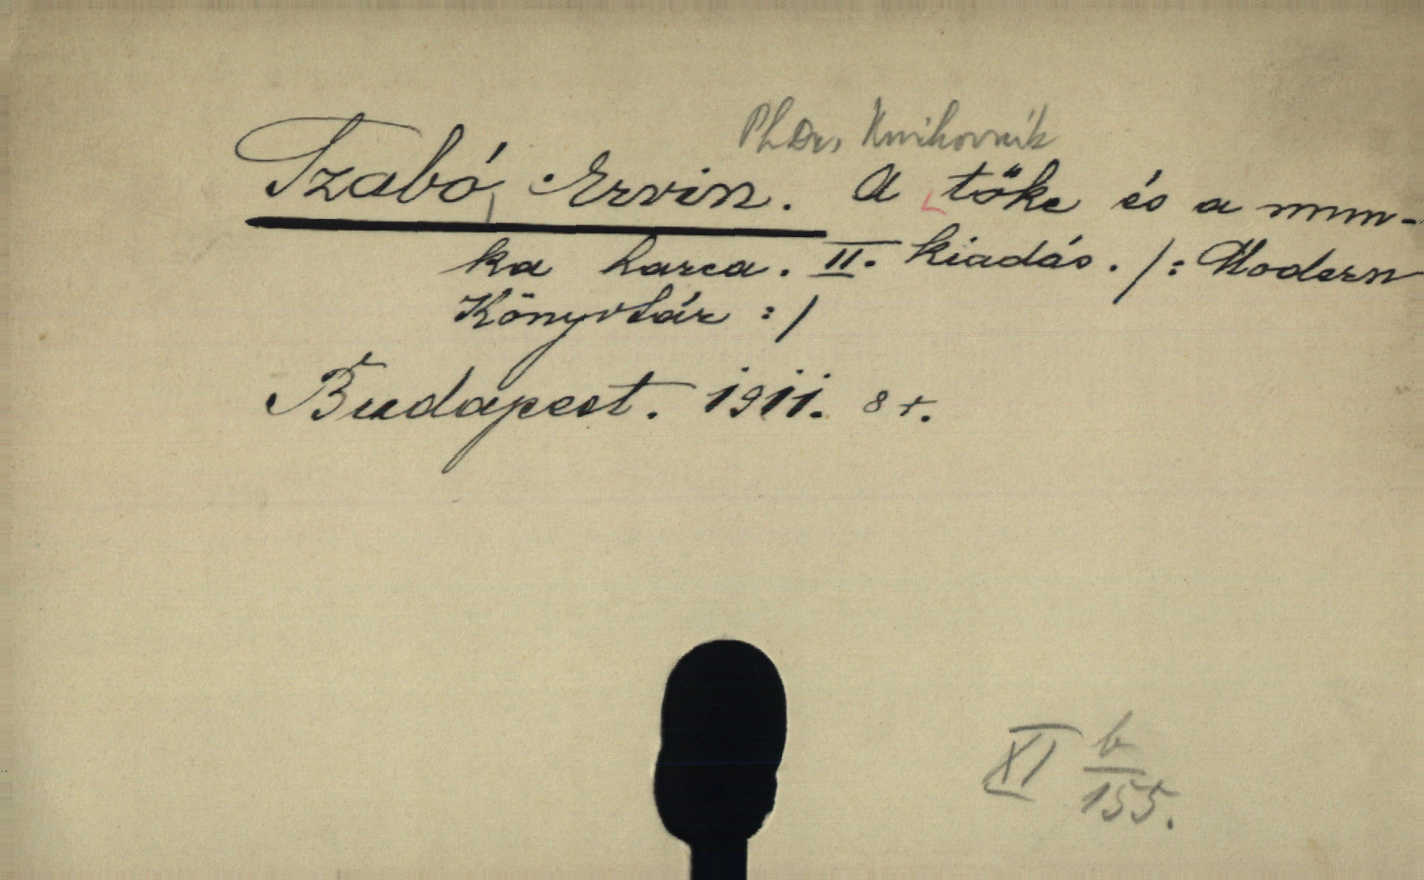 PhDr, Knihovník
Szabó, Ervin. A tőke és a mun-
ka harca. II. kiadás. /: Modern
Könyvtár :/
Budapest. 1911. 8 r.
XI b/155.